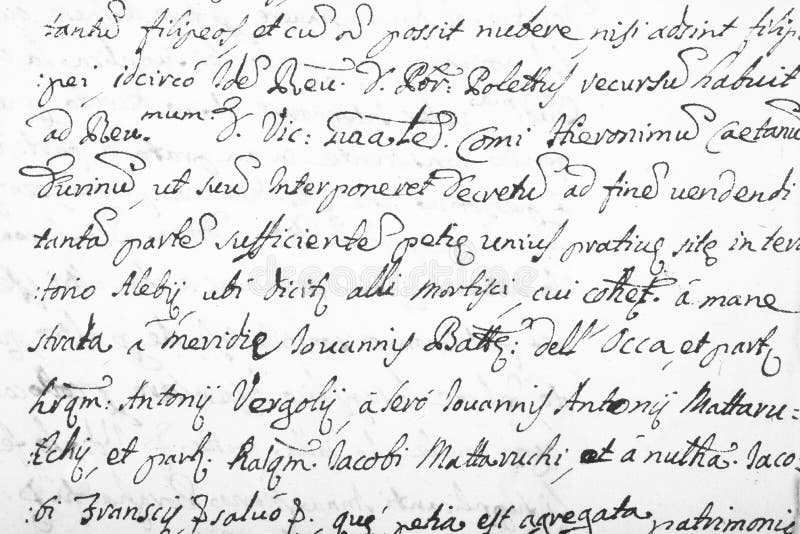 tantũ filipeos, et cũ nõ possit nubere nisi adsint filip
:pei, idcircó Idẽ Reu. D. Polettus recursũ habuit
ad Reu.mum D. Vic: Gñalẽ. Comi Hieronimũ Caetanũ
Durinũ, ut suũ interponeret Decretũ ad finẽ vendendi
tantã partẽ sufficientẽ petię unius pratiuę sitę in teri
:torio Alebij ubi dicitʳ alli Mortisci, cui cohęt. á mane
strata á meridie Iouannis Battę: dell' Occa, et partʳ
hrqm: Antonij Vergolij, á seró Iouannis Antonij Mattaru:
:tchij, et partʳ. Iacobi Mattaruchi, et á nulha. Iaco:
:bi Franscij salvó qué petia est agregata patrimonio